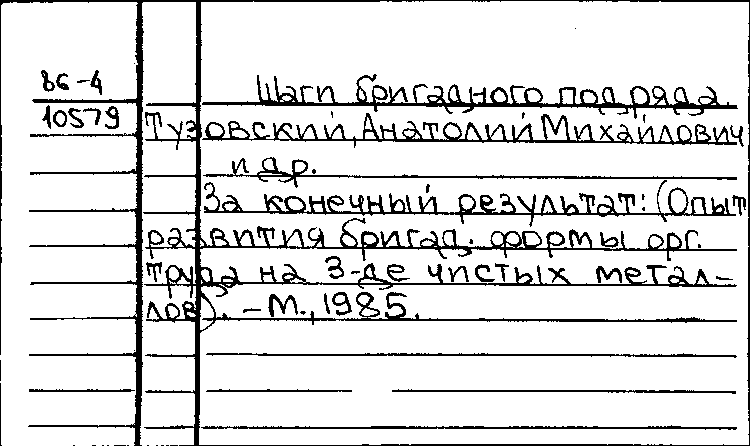 86-4
10579
Шаги бригадного подряда.
Тузовский, Анатолий Михайлович
и др.
За конечный результат: (Опыт
развития бригад. формы орг.
труда на З-де чистых метал-
лов). - М., 1985.